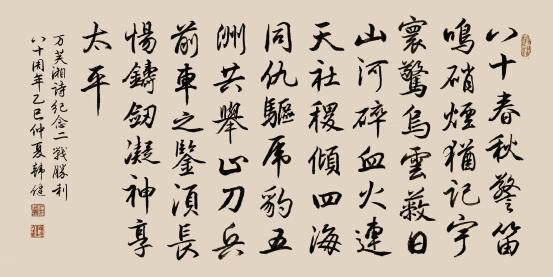 八十春秋警笛
鳴硝煙猶記宇
寰驚烏雲蔽日
山河碎血火連
天社稷傾四海
同仇驅虎豹五
洲共舉止刀兵
前車之鑒須長
惕鑄劍凝神享
太平
万芙湘詩紀念二戰勝利
八十周年乙巳仲夏韓健